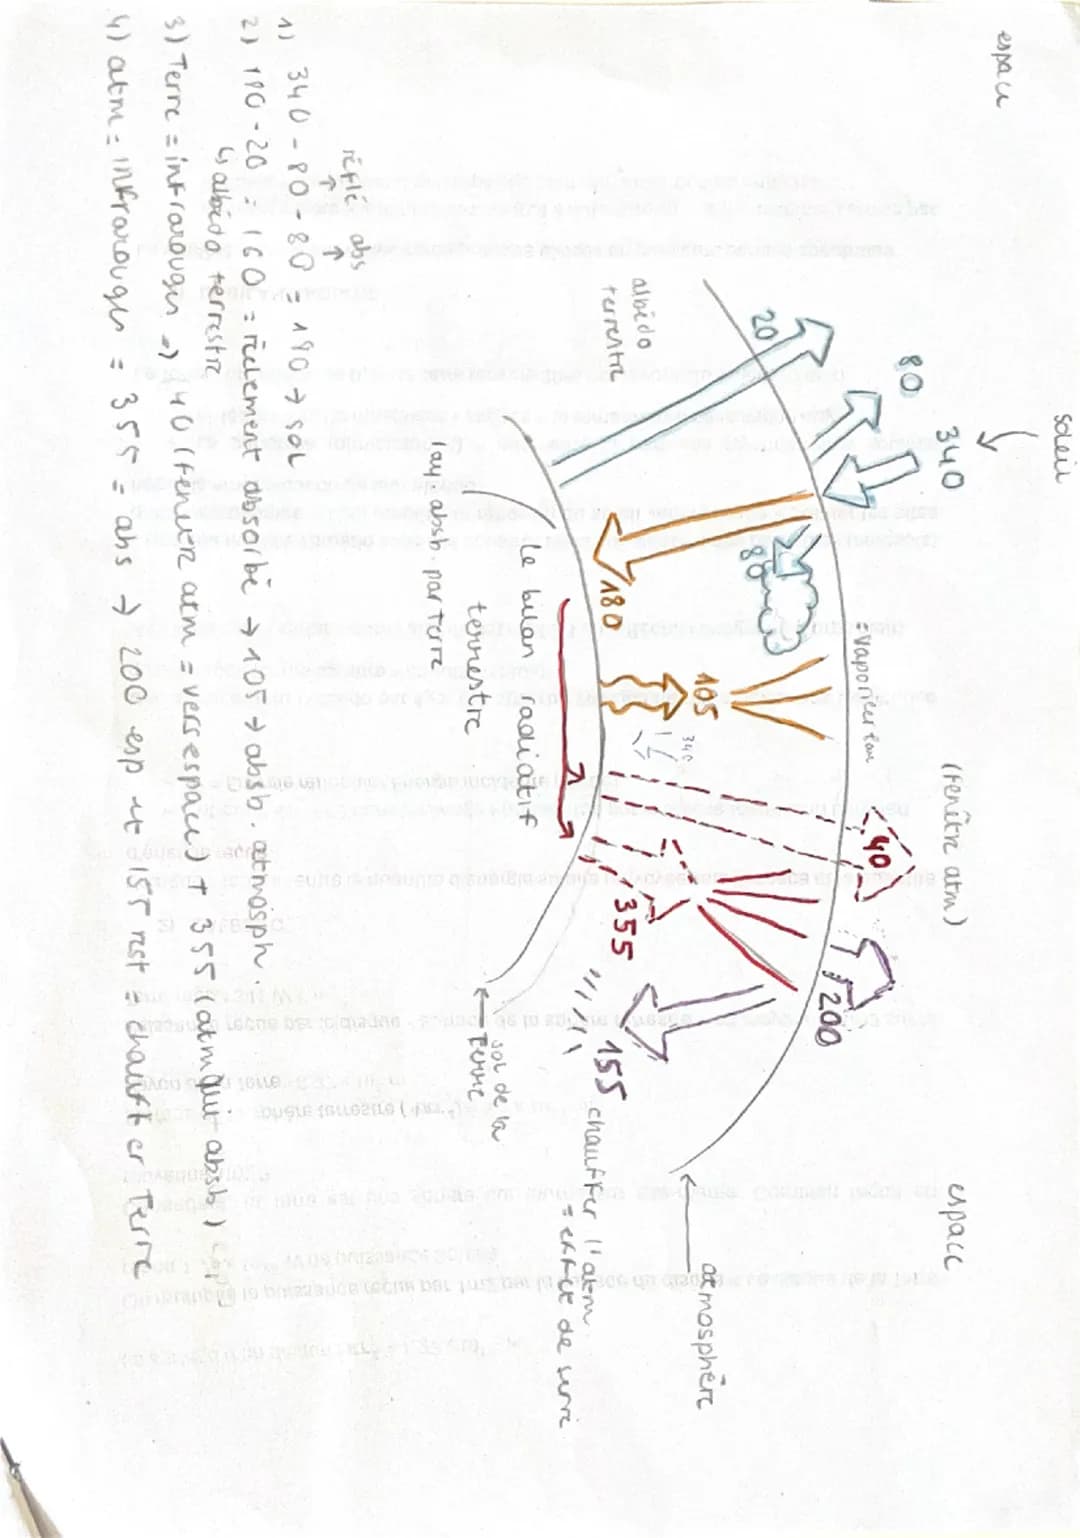 soleil
espace
340
(fenêtre atm)
espace
80
= vapeur eau
40
200
20
80
105
340
atmosphère
albédo
terrestre
180
355
155 chauffer l'atm.
= effet de serre
Le bilan radiatif
terrestre
ray absb. par terre
sol de la
Terre
réflé abs
1) 340 - 80 - 80 = 180 → sol
2) 180 - 20 = 160 = réellement absorbé → 105 → absb. atmosph.
↳ albédo terrestre
3) Terre = infrarouges => 40 (fenêtre atm = vers espace) + 355 (atm qui absb)
4) atm = infrarouges = 355 = abs → 200 esp et 155 rest = chauffer Terre